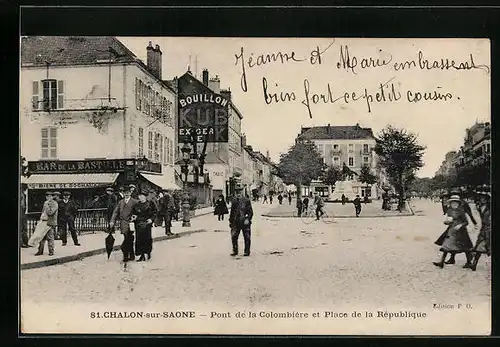 Jeanne et Marie embrassent
bien fort ce petit cousin.
BOUILLON
KUB
EXIGER
BAR DE LA BASTILLE
TABAC
81. CHALON-sur-SAONE — Pont de la Colombière et Place de la République
Edition P O.